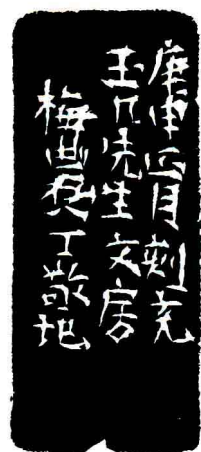 庚申正月刻充
玉几先生文房
梅農丁敬地